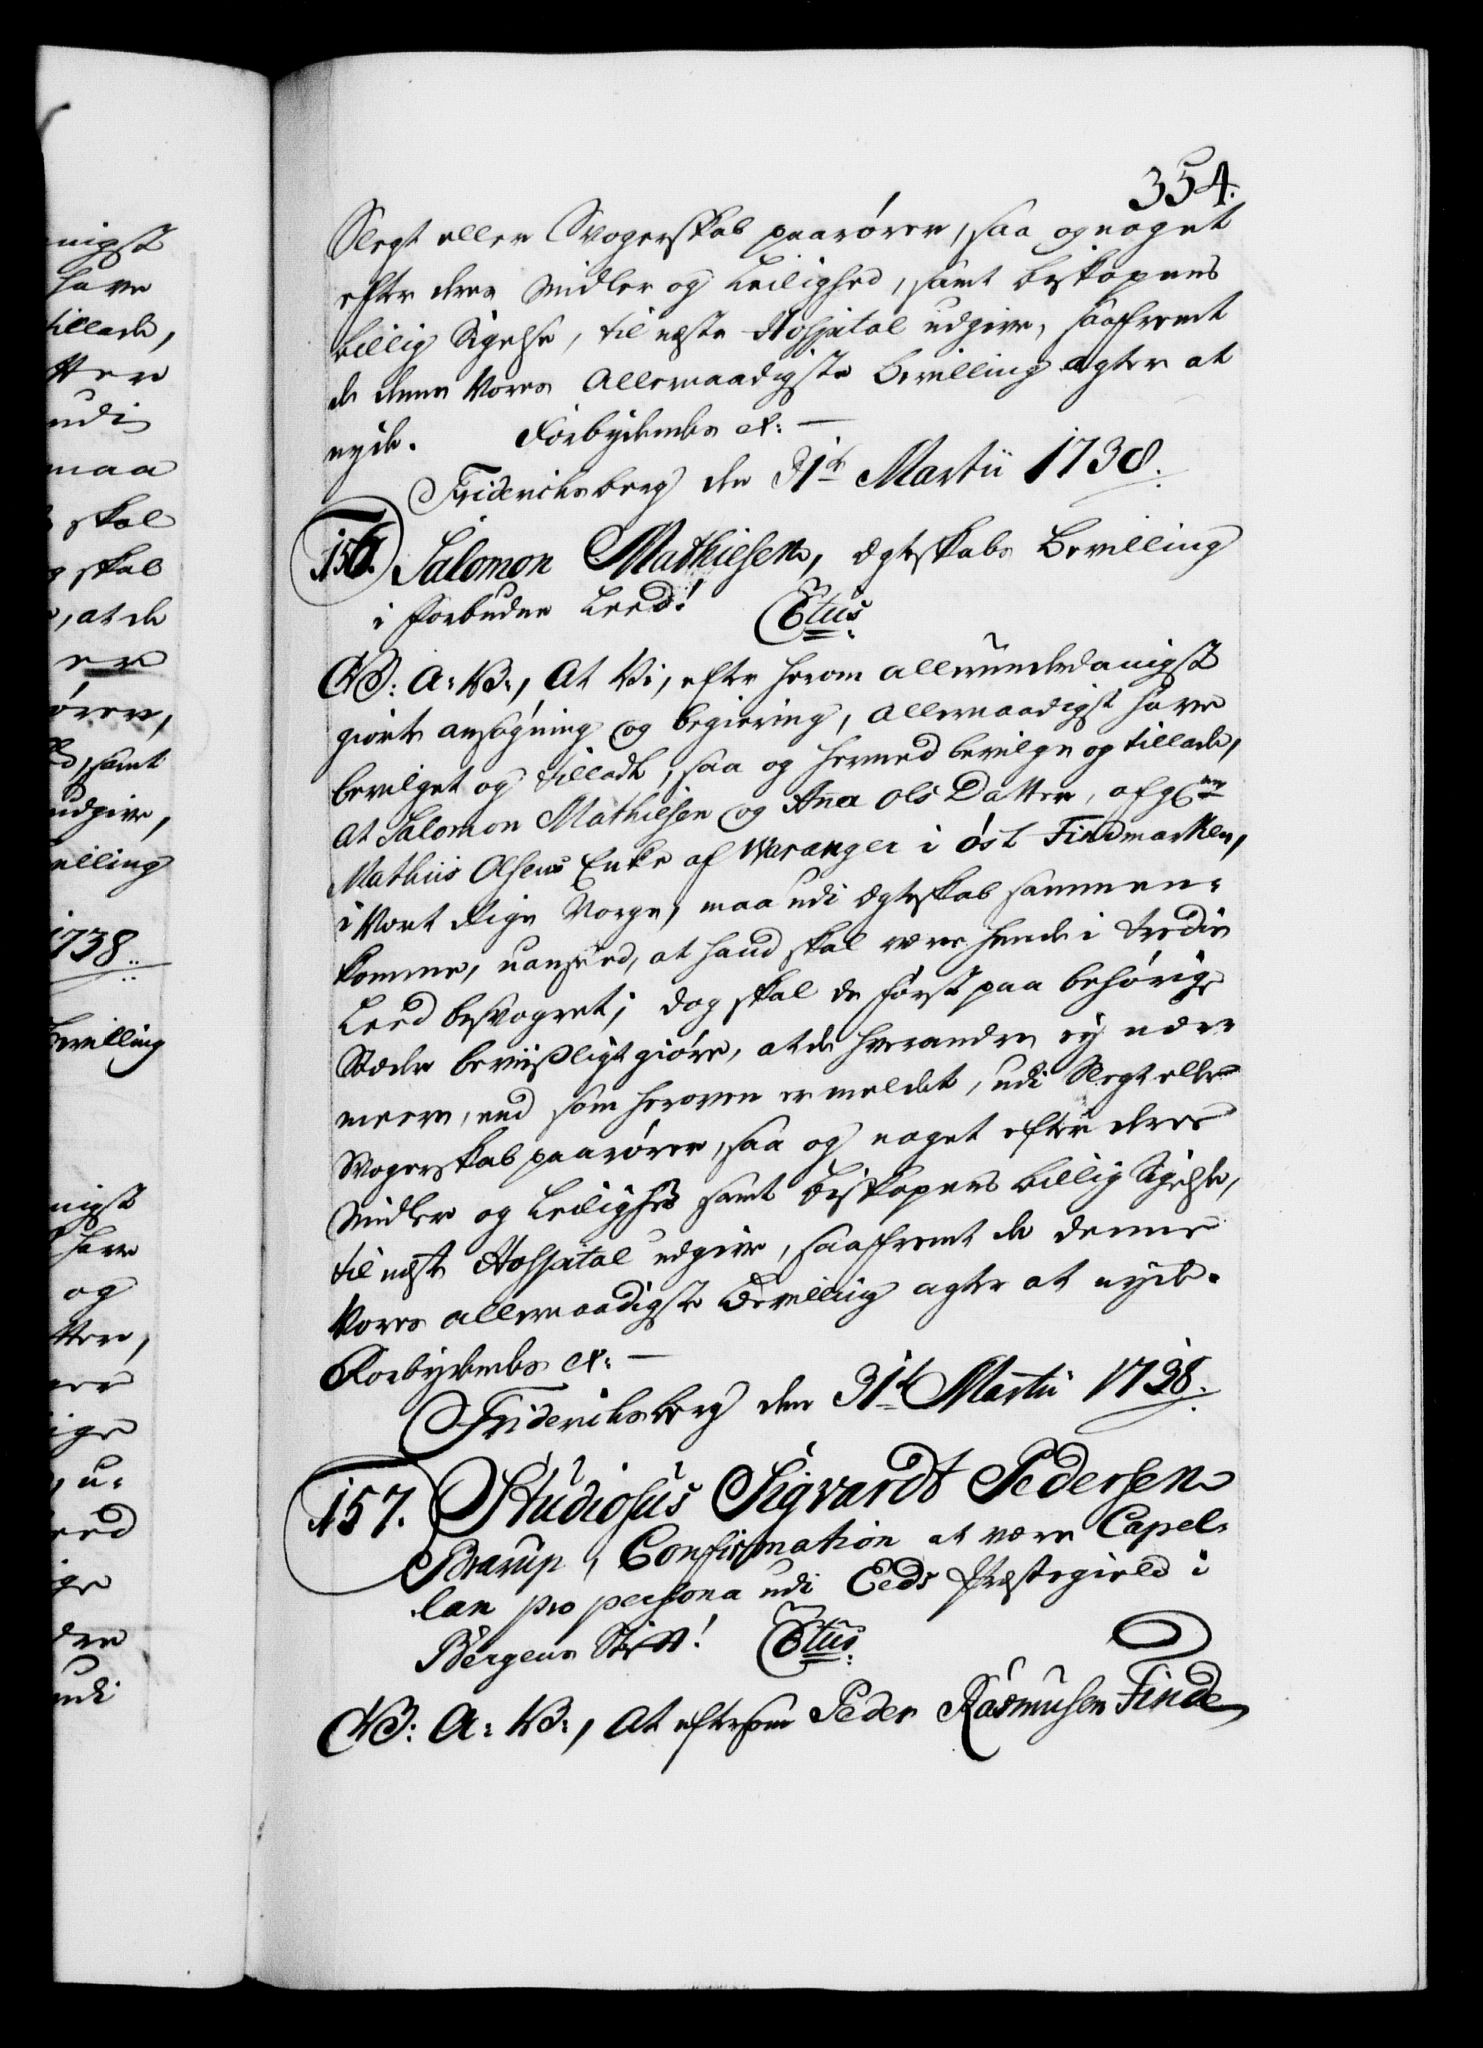 354.
Slegt eller Svogerskab paarører, saa og noget
efter deres Midler og Leilighed, samt Biskopens
billig Sigelse, til neste Hospital udgive, saafremt
de denne Vores Allernaadigste Bevilling agter at
nyde. Forbydendes etc: —
Friderichsberg den 31te Martii 1738.
156. Salomon Mathiesen, Ægteskabs Bevilling
i forbudne Leed! Ctus
C VI: A: V:, At Vi, efter herom allerunderdanigst
giorte ansøgning og begiering, allernaadigst have
bevilget og tilladt, saa og hermed bevilge og tillade,
at Salomon Mathiesen og Anna Ols Datter, afg:ne
Mathiis Olsens Enke af Waranger i øst Findmarken,
i Vort Rige Norge, maa udi Ægteskab sammen-
komme, uanseed, at hand skal være hende i tredie
Leed besvogret; dog skal de først paa behørige
Stæder beviisligt giøre, at de hverandre ey nær-
meere, end som heroven er meldet, udi Slegt eller
Svogerskab paarører, saa og noget efter deres
Midler og Leilighed samt Biskopens billig Sigelse,
til neste Hospital udgive, saafremt de denne
Vores allernaadigste Bevilling agter at nyde.
Forbydendes etc: —
Friderichsberg den 31te Martii 1738.
157. Studiosus Sigvardt Pedersen
Brarup, Confirmation at være Capel-
lan pro persona udi Eeds Præstegield i
Bergens Stift! Ctus
C VI: A: V:, At eftersom Peder Rasmusen Finde
nigst
have
tillade,
tter
udi
maa
skal
skal
, at de
er
ører,
, samt
udgive,
villing
1738.
Bevilling
nigst
have
og
tter,
ger
ige
, u-
eed
ige
dre
udi